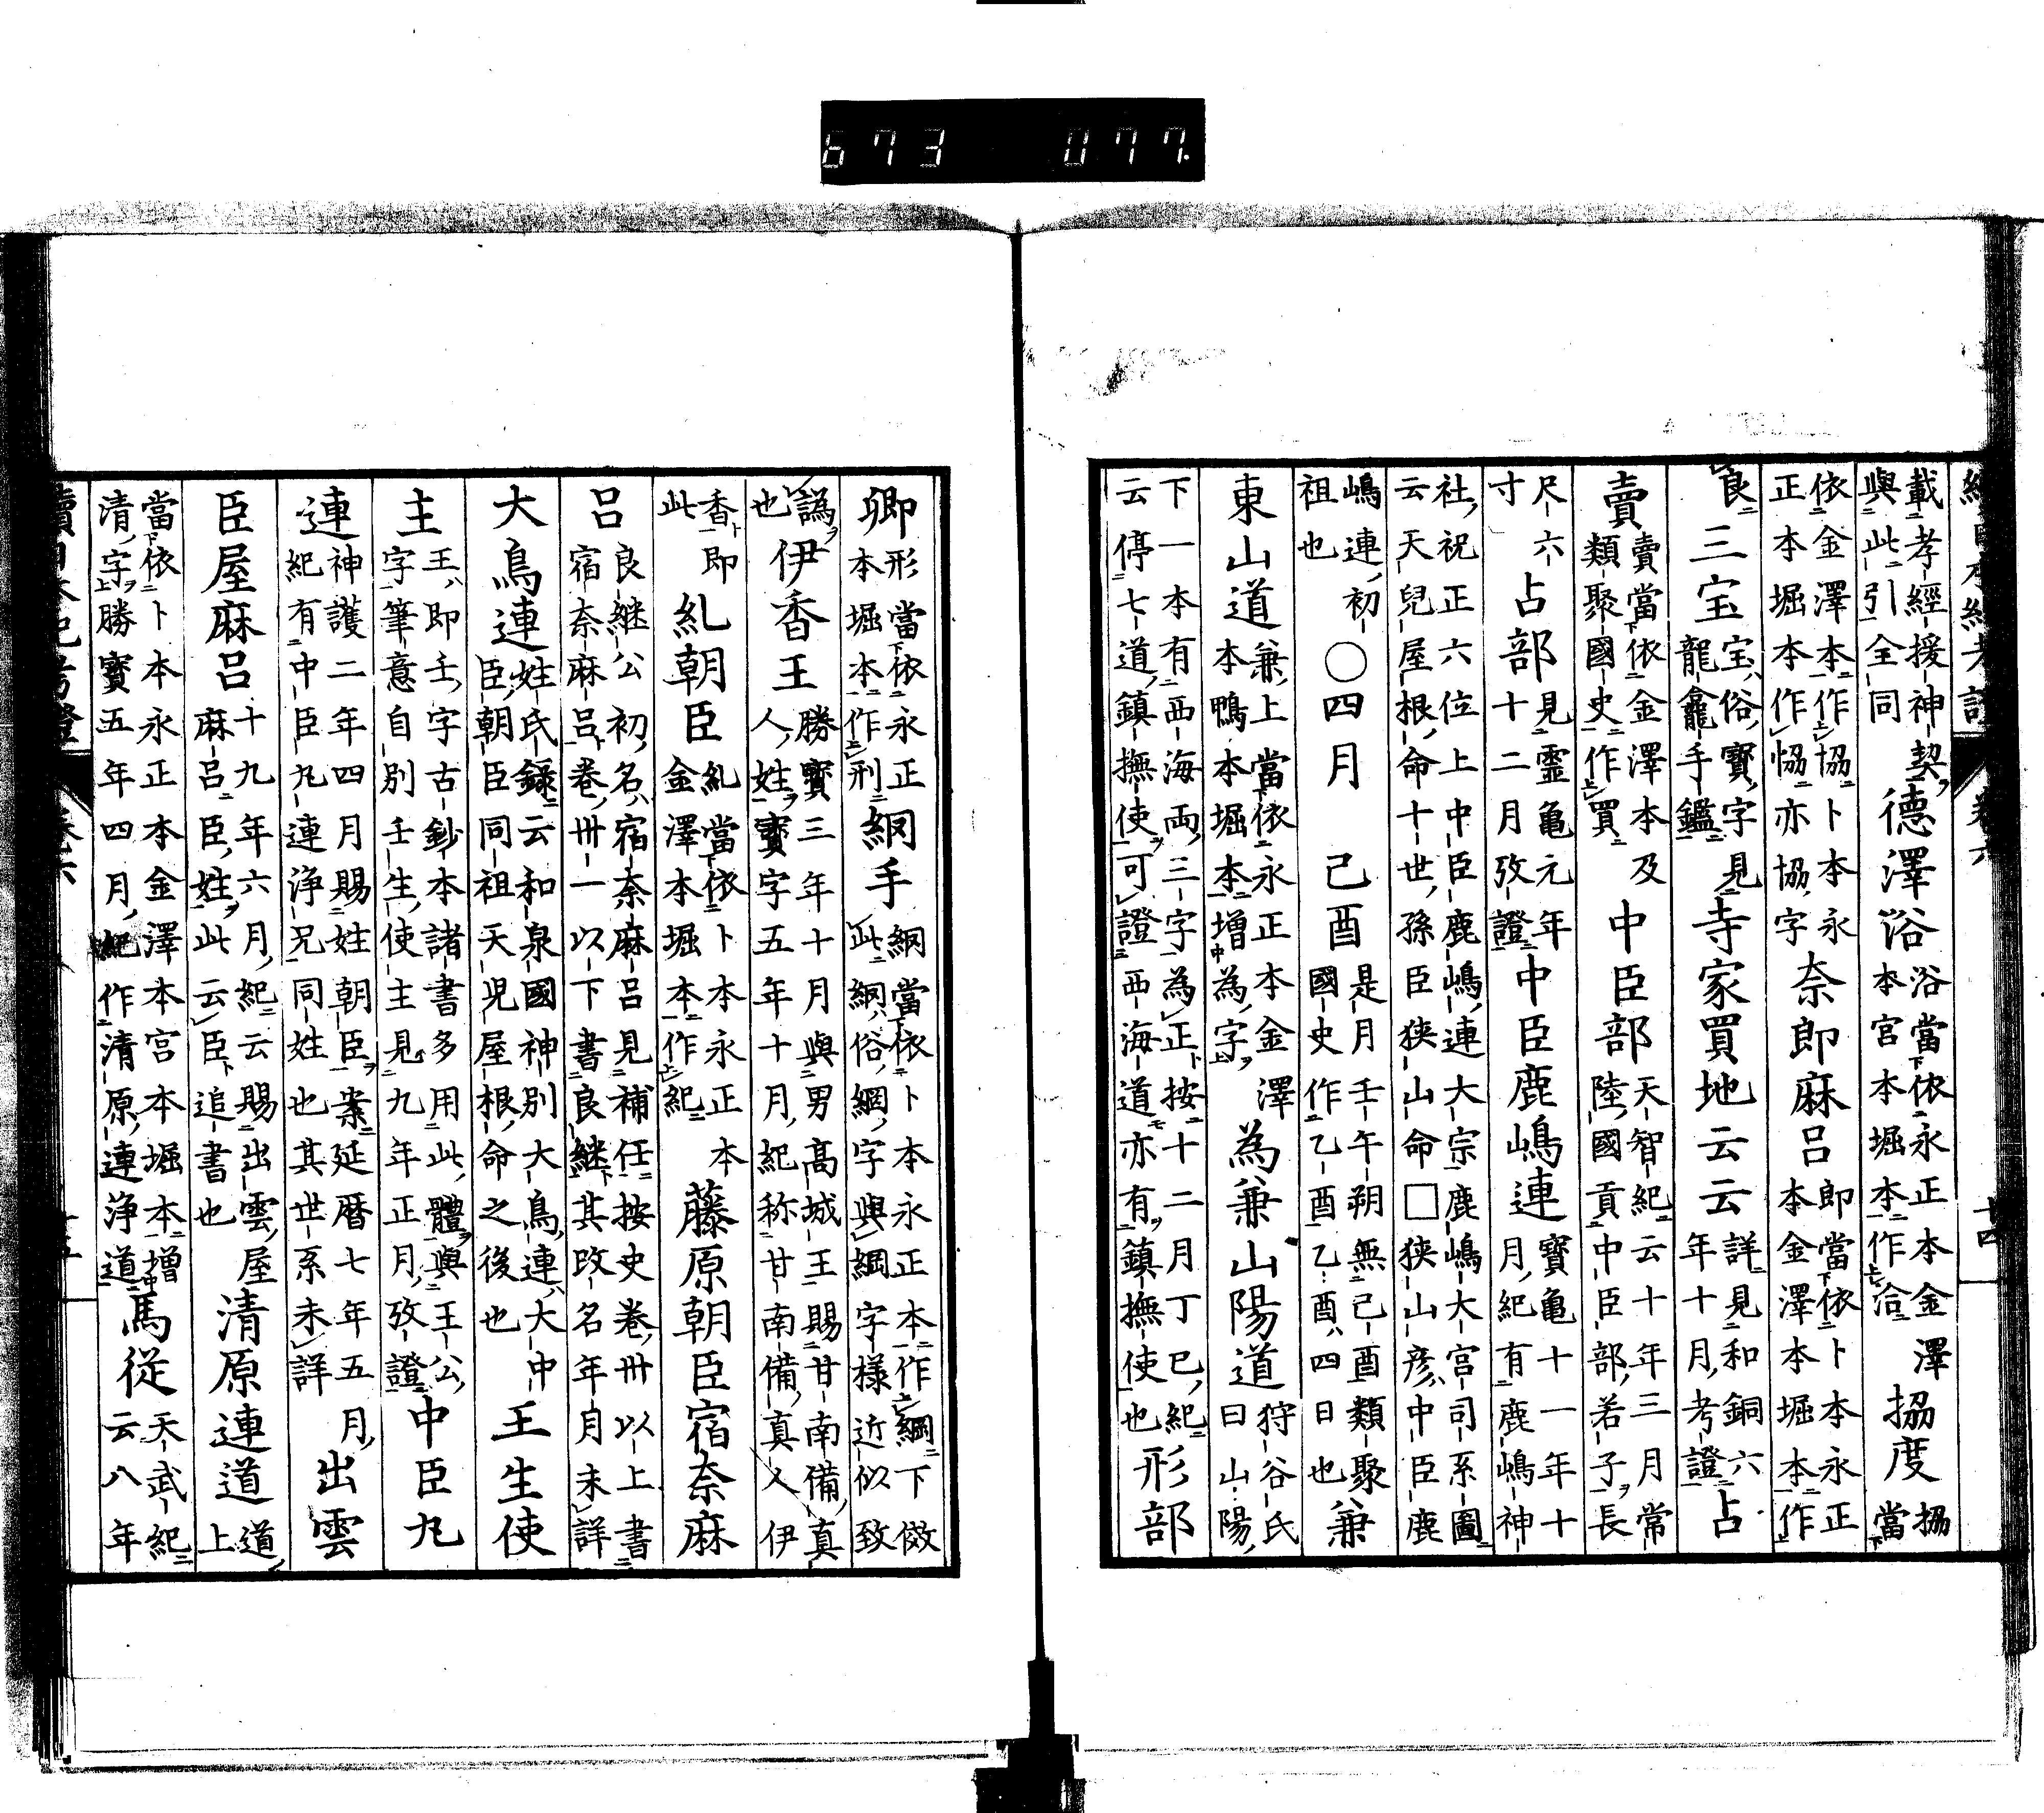 673 077.
載孝經援神契德澤浴浴當依永正本金澤協度協當
與此引全同本宮本堀本作洽
依金澤本作協卜本永奈郎麻呂郎當依卜本永正
正本堀本作恊亦協字本金澤本堀本作
良三宝宝俗寶字見寺家買地云云詳見和銅六占
龍龕手鑑年十月考證
賣賣當依金澤本及中臣部天智紀云十年三月常
類聚國史作買陸國貢中臣部若子長
尺六占部見霊亀元年中臣鹿嶋連寶亀十一年十
寸十二月攷證月紀有鹿嶋神
社祝正六位上中臣鹿嶋連大宗鹿嶋大宮司系圖
云天兒屋根命十世孫臣狭山命□狭山彦中臣鹿
嶋連初〇四月己酉是月壬午朔無己酉類聚兼
祖也國史作乙酉乙酉四日也
東山道兼上當依永正本金澤為兼山陽道狩谷氏
本鴨本堀本增為字曰山陽
下一本有西海兩三字為正按十二月丁巳紀形部
云停七道鎮撫使可證西海道亦有鎮撫使也
卿形當依永正網手網當依卜本永正本作綱下倣
本堀本作刑此網俗綱字與綱字様近似致
譌伊香王勝寶三年十月與男高城王賜甘南備真
也人姓寶字五年十月紀称甘南備真人伊
香即糺朝臣糺當依卜本永正本藤原朝臣宿奈麻
此金澤本堀本作紀
呂良継公初名宿奈麻呂見補任按史卷卅以上書
宿奈麻呂卷卅一以下書良継其改名年月未詳
大鳥連姓氏録云和泉國神別大鳥連大中王生使
臣朝臣同祖天兒屋根命之後也
主王即壬字古鈔本諸書多用此體與王公中臣丸
字筆意自別壬生使主見九年正月攷證
連神護二年四月賜姓朝臣案延暦七年五月出雲
紀有中臣丸連浄兄同姓也其世系未詳
臣屋麻呂十九年六月紀云賜出雲屋清原連道道
麻呂臣姓此云臣追書也上
當依卜本永正本金澤本宮本堀本增馬從天武紀
清字勝寶五年四月紀作清原連浄道云八年